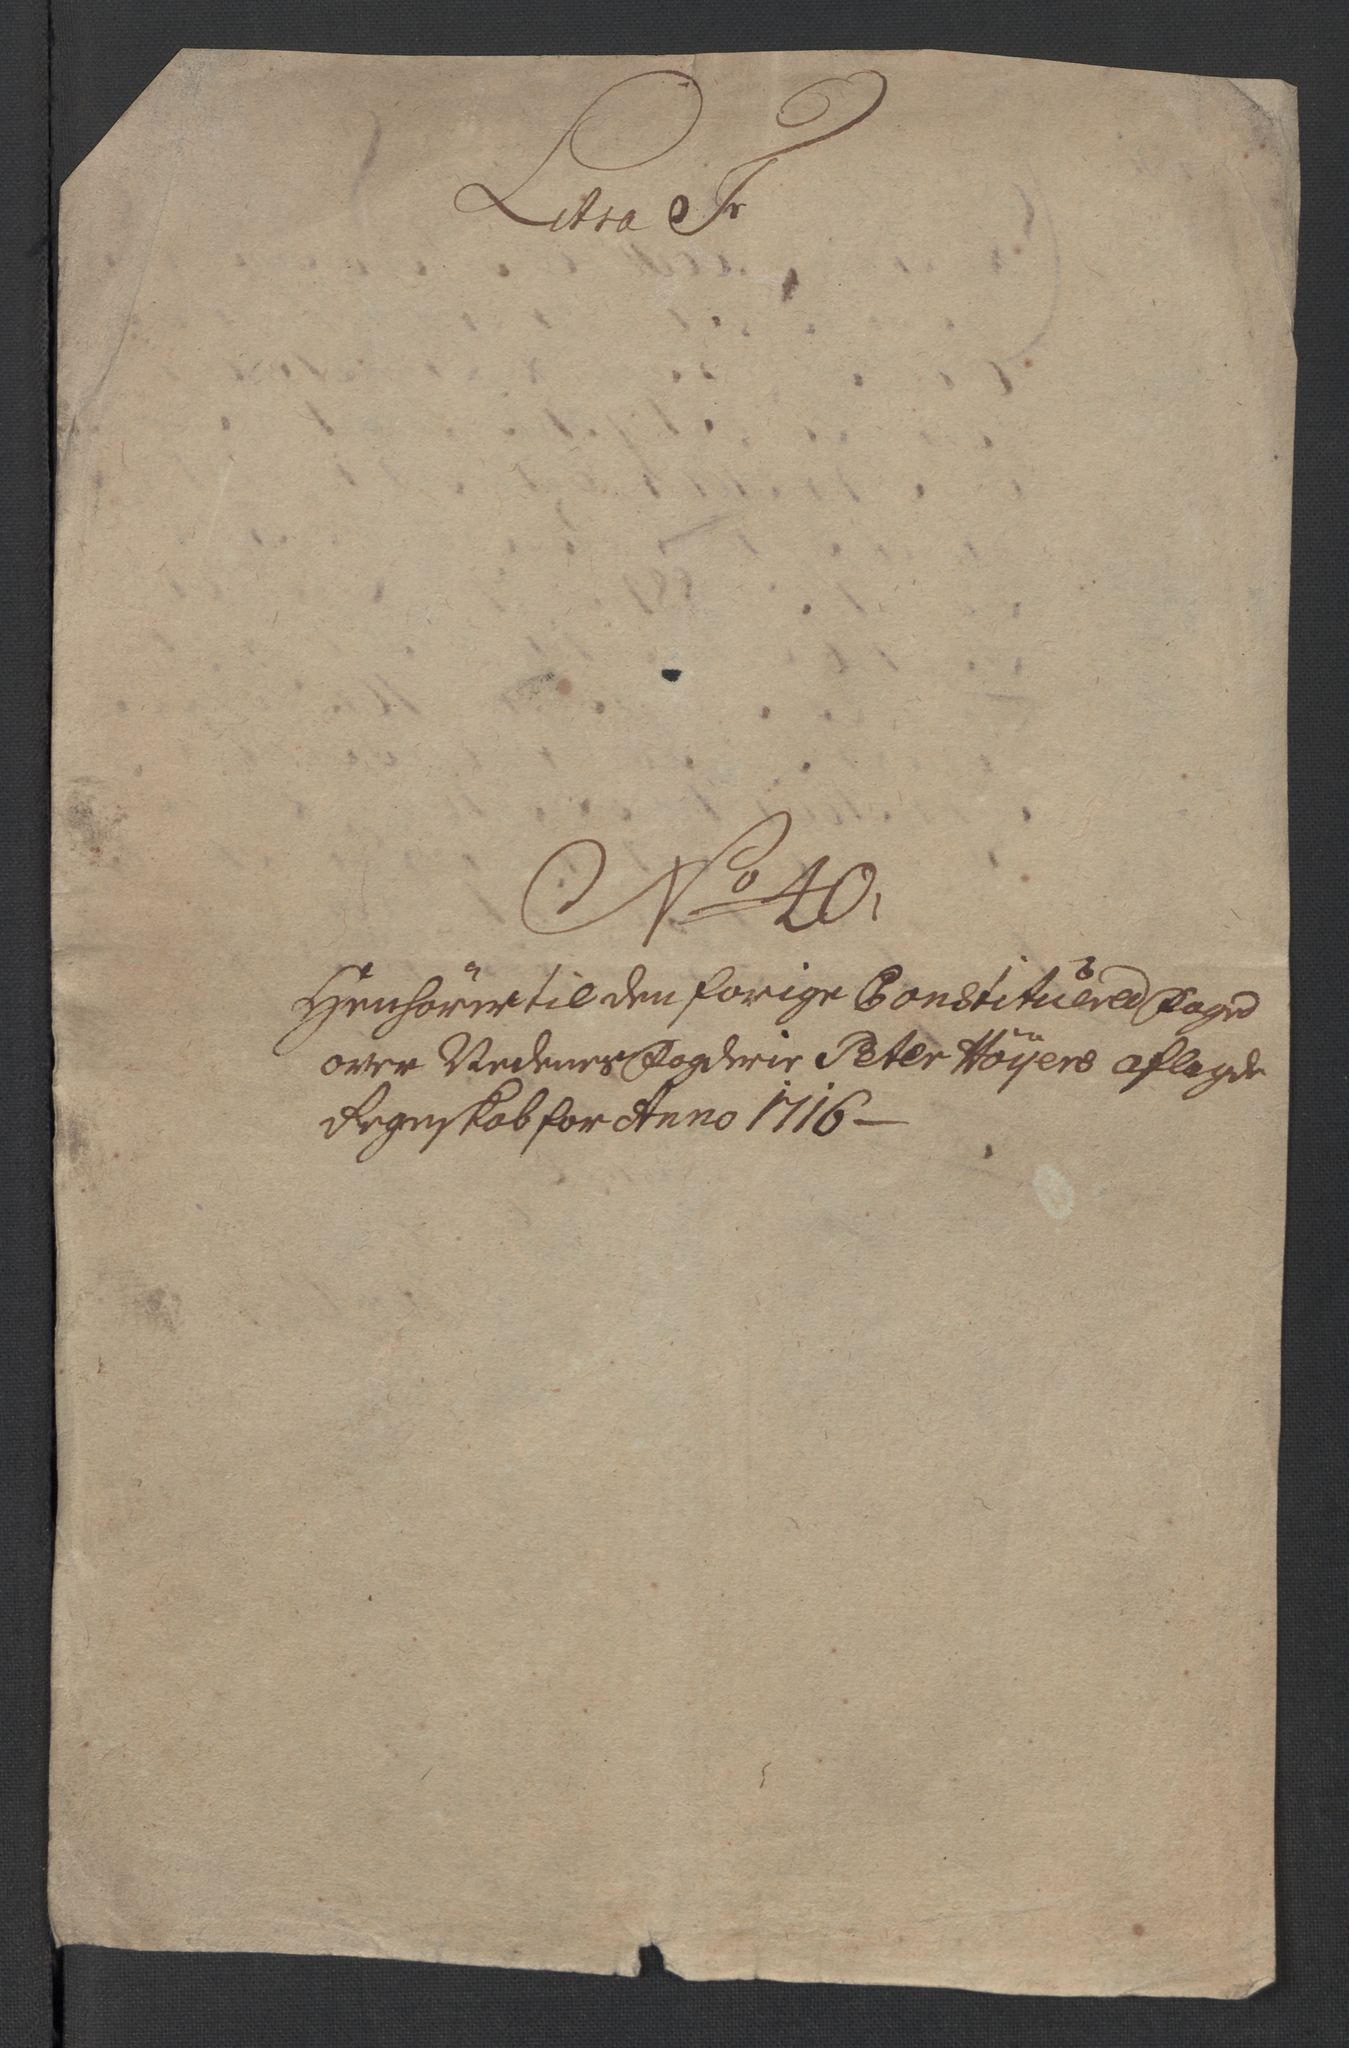 Litra F
No 40.
Henhörer til den forige Constituered Foged
over Nedenes Fogderie Peter Höyers aflagde
Regnskab for Anno 1716 —